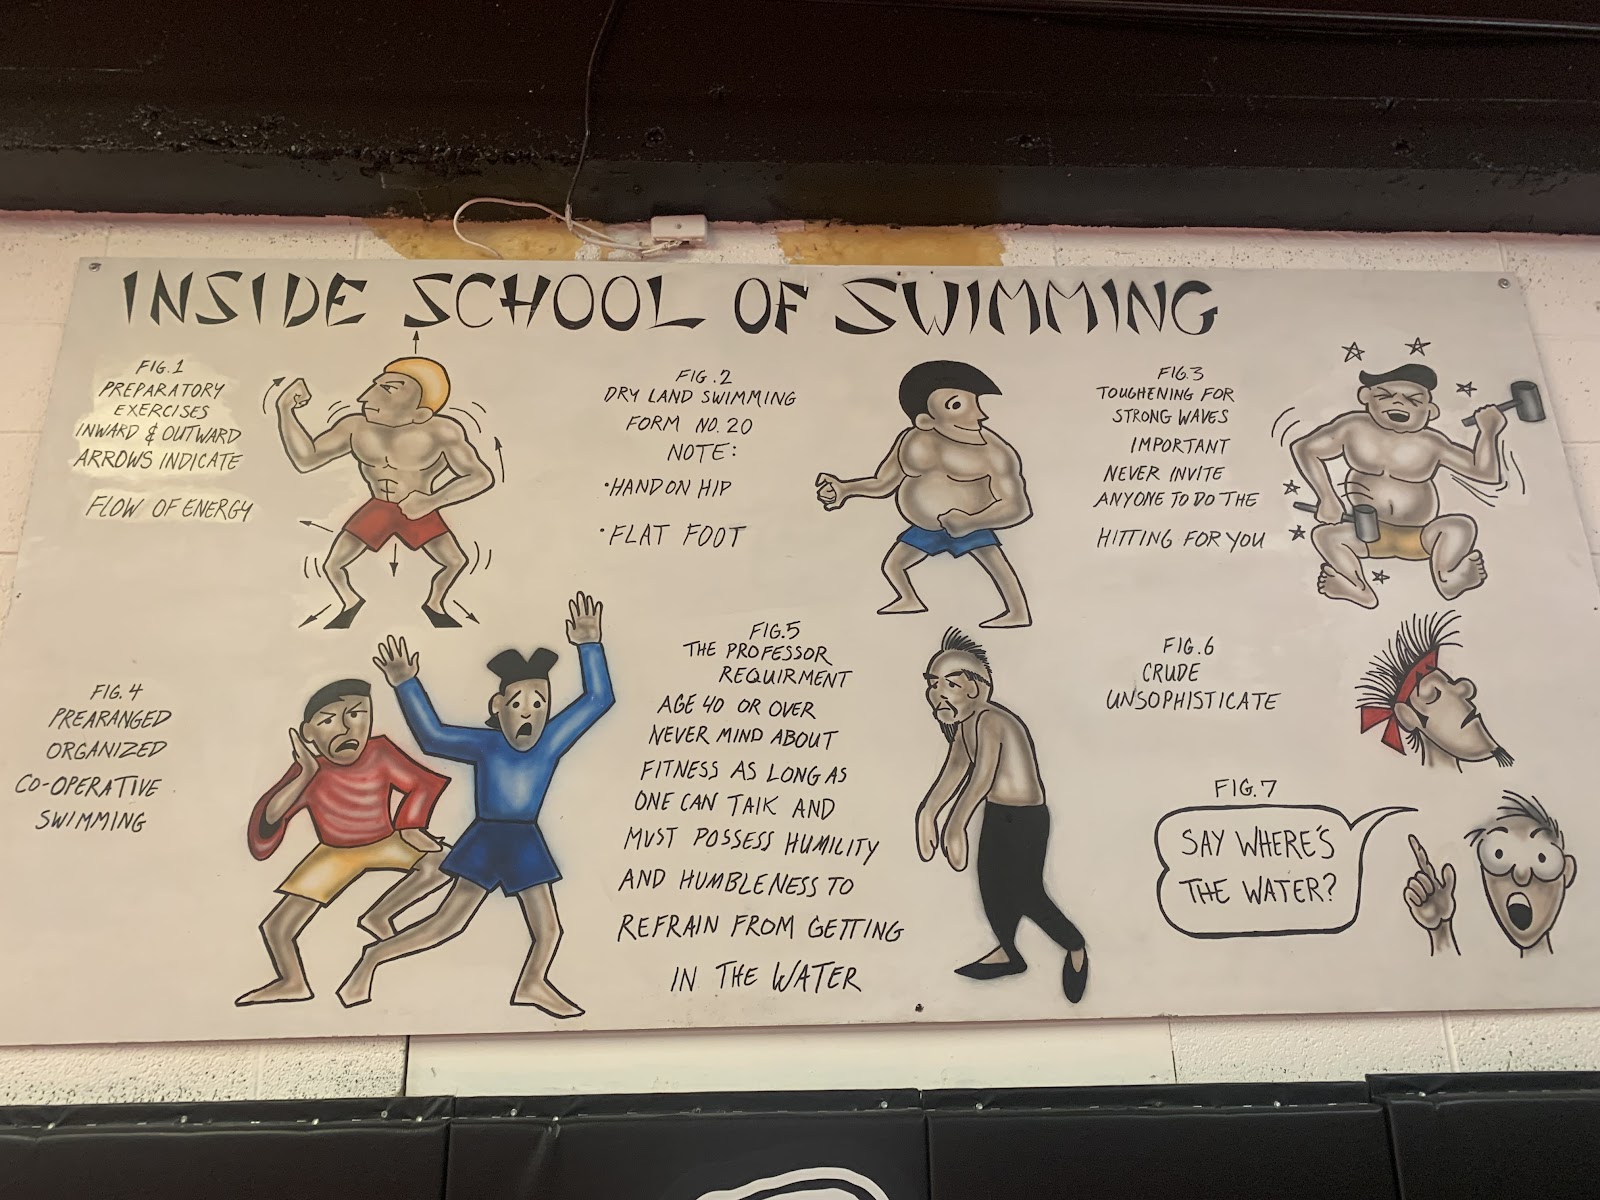 INSIDE SCHOOL OF SWIMMING
FIG.1
PREPARATORY
EXERCISES
INWARD & OUTWARD
ARROWS INDICATE
FLOW OF ENERGY
FIG.2
DRY LAND SWIMMING
FORM NO. 20
NOTE:
•HAND ON HIP
•FLAT FOOT
FIG.3
TOUGHENING FOR
STRONG WAVES
IMPORTANT
NEVER INVITE
ANYONE TO DO THE
HITTING FOR YOU
FIG.4
PREARANGED
ORGANIZED
CO-OPERATIVE
SWIMMING
FIG.5
THE PROFESSOR
REQUIRMENT
AGE 40 OR OVER
NEVER MIND ABOUT
FITNESS AS LONG AS
ONE CAN TALK AND
MUST POSSESS HUMILITY
AND HUMBLENESS TO
REFRAIN FROM GETTING
IN THE WATER
FIG.6
CRUDE
UNSOPHISTICATE
FIG.7
SAY WHERE'S
THE WATER?